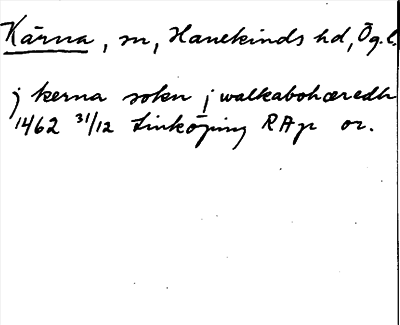 Kärna, sn, Hanekinds hd, Ög.l.
j kerna sokn j walkabohæredh
1462 31/12 Linköping RAp or.